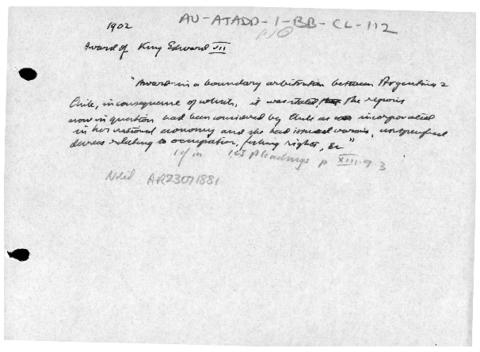 1902 AU-ATADD-1-BB-CL-112
Award of King Edward VII
"Award in a boundary arbitration between Argentina &
Chile, in consequence of which, it was stated, the regions
now in question had been considered by Chile as incorporated
in her national economy and she had issued various, unspecified
decrees relating to occupation, fishing rights, &c"
ICJ Pleadings p XIII. 3
Neil ARZ3071881